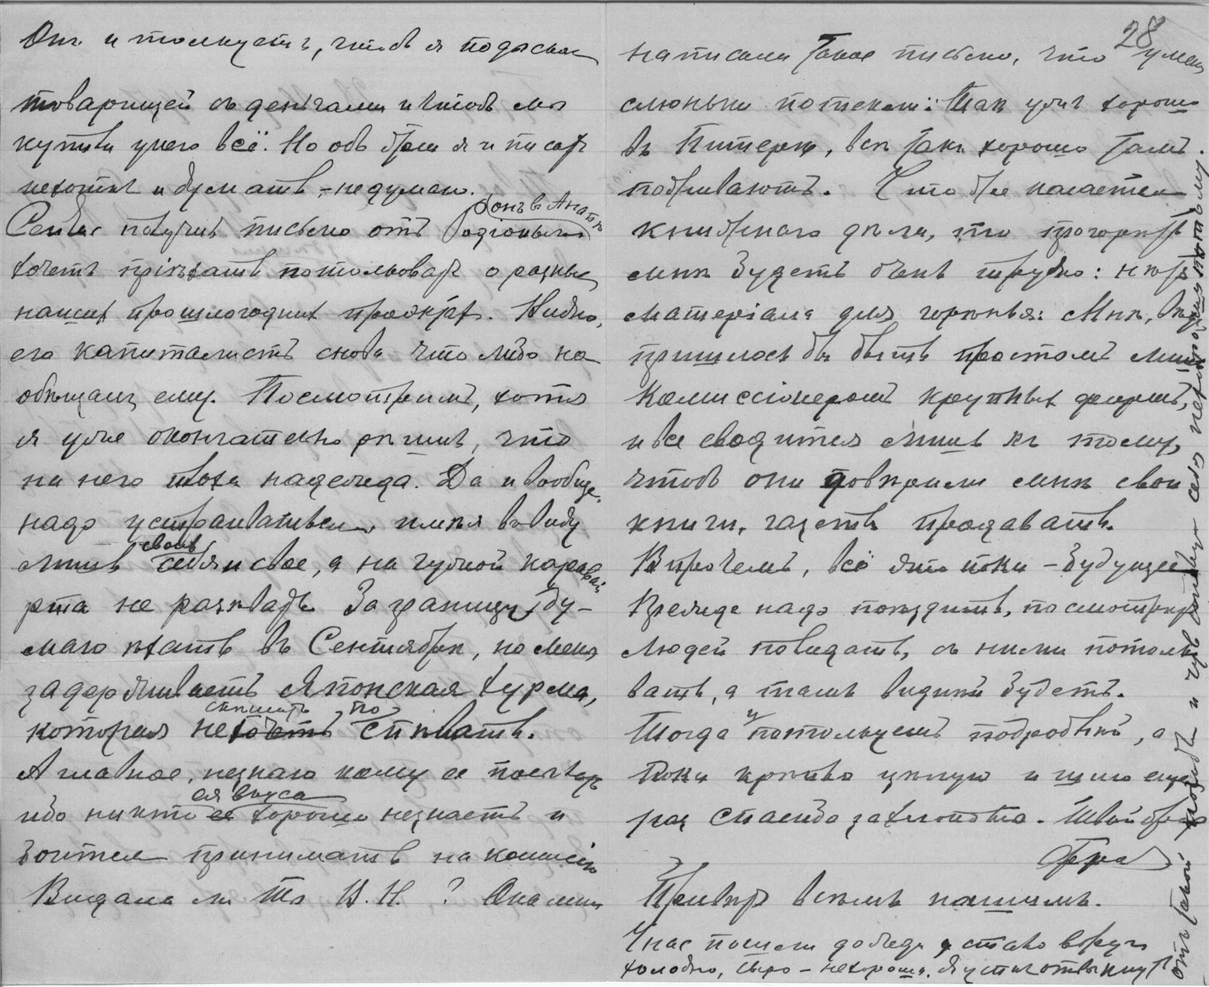 Он и толкуетъ, чтобъ я подыскал
товарищей съ деньгами и чтобъ мы
купили у него всё. Но объ этомъ я и писать
не хотел и думать – не думаю.
Сейчас получил письмо отъ
хочетъ пріѣхать потолковать о разных
наших прошлогодних проэктах. Видно,
его капиталистъ снова что либо на-
обѣщалъ ему. Посмотримъ, хотя
я уже окончательно рѣшил, что
на него плоха надежда. Да и вообще,
надо устраиваться, имѣя въ виду
лишь свое, а на чужой каравай
рта не разѣвать. За границу ду-
маю ѣхать въ Сентябрѣ, но меня
задерживаетъ Японская хурма,
которая не хочетъ спѣшить поспѣвать.
А главное, не знаю кому ее посылать
ибо никто ея вкуса хорошо не знаетъ и
боится принимать на комиссію
Видала ли Ты В. Н. ? Она мнѣ
28
написала такое письмо, что у меня
слюньки потекли: Так ужъ хорошо
въ Питерѣ, всѣ такъ хорошо тамъ
поживаютъ. Что же касается
книжнаго дѣла, то прогорѣть
мнѣ будетъ очень трудно: нѣтъ
матеріала для горѣнья: Мнѣ,
пришлось бы быть простымъ лишь
Комиссіонеромъ крупныхъ фирмъ,
и все сводится лишь къ тому,
чтобъ они довѣрили мнѣ свои
книги, газеты продавать.
Впрочемъ, всё это пока – будущее
Прежде надо поѣздить, посмотрѣть
людей повидать, съ ними потолко-
вать, а тамъ виднѣй будетъ.
Тогда и потолкуемъ подробнѣй, а
пока крѣпко цѣлую и шлю еще
раз спасибо за хлопоты. Твой
Привѣт всѣмъ нашимъ.
У нас пошли дожди и стало вдругъ
холодно, сыро – нехорошо. Я уж отвыкнул
отъ такой погоды и